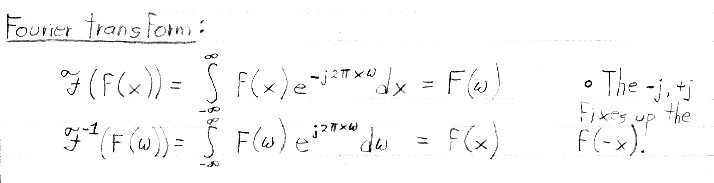 Fourier transform:
ℱ(f(x)) = ∫_{-∞}^{∞} f(x) e^{-j2πxω} dx = F(ω)
ℱ⁻¹(F(ω)) = ∫_{-∞}^{∞} F(ω) e^{j2πxω} dω = f(x)
• The -j, +j
fixes up the
f(-x).